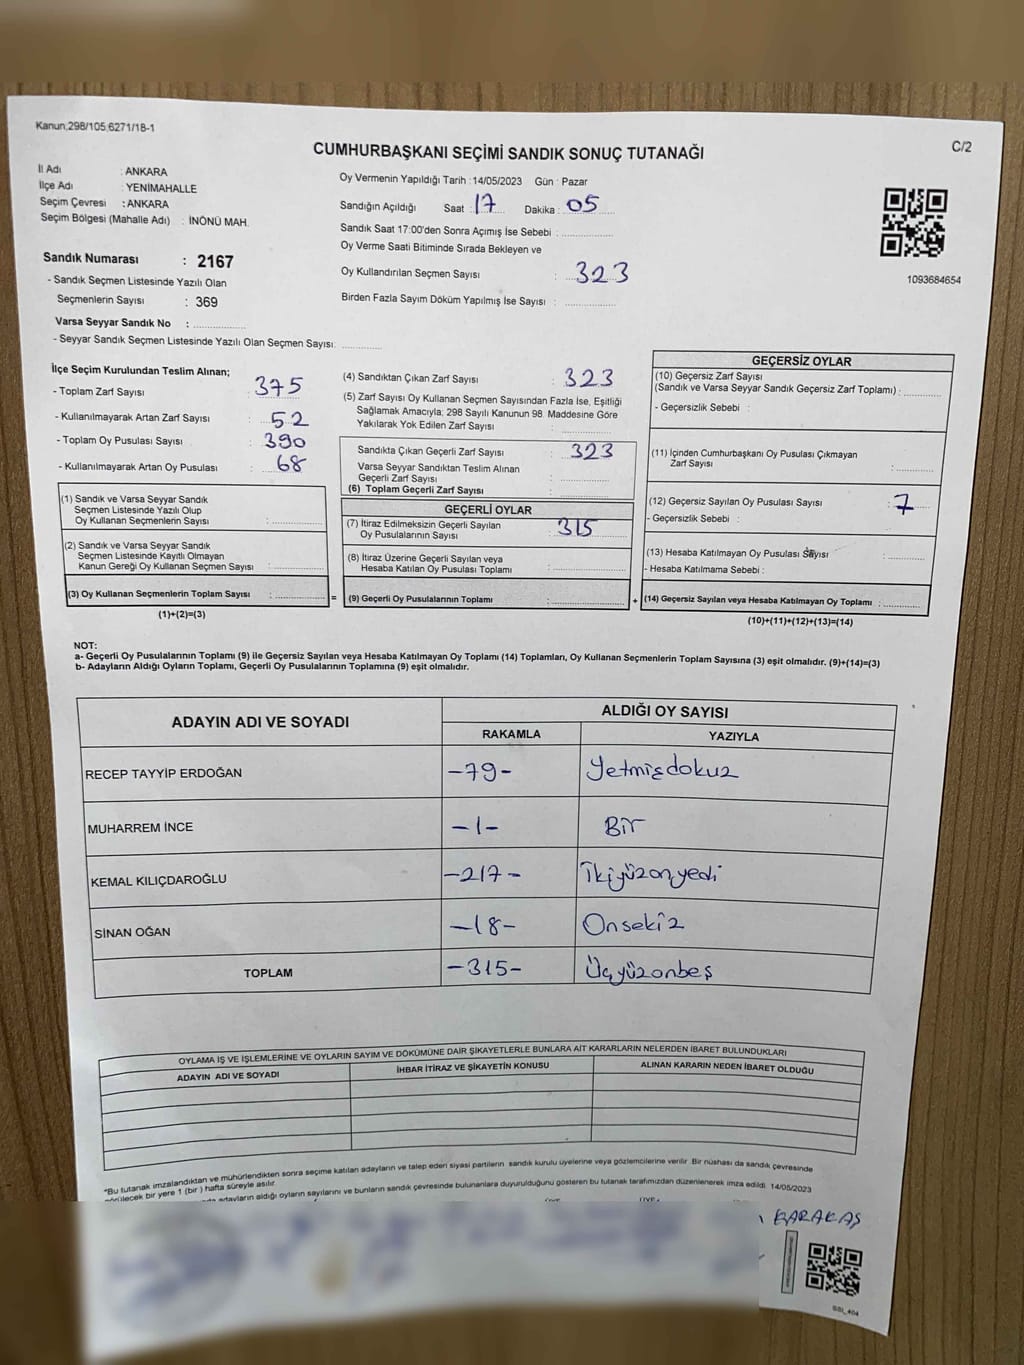 Kanun;298/105;6271/18-1
C/2
CUMHURBAŞKANI SEÇİMİ SANDIK SONUÇ TUTANAĞI
İl Adı : ANKARA
İlçe Adı : YENİMAHALLE
Seçim Çevresi : ANKARA
Seçim Bölgesi (Mahalle Adı) : İNÖNÜ MAH.
Sandık Numarası : 2167
- Sandık Seçmen Listesinde Yazılı Olan
Seçmenlerin Sayısı : 369
Varsa Seyyar Sandık No : ....................
- Seyyar Sandık Seçmen Listesinde Yazılı Olan Seçmen Sayısı: ..............
Oy Vermenin Yapıldığı Tarih :14/05/2023 Gün : Pazar
Sandığın Açıldığı Saat : 17 Dakika : 05
Sandık Saat 17:00'den Sonra Açımış İse Sebebi : ....................
Oy Verme Saati Bitiminde Sırada Bekleyen ve
Oy Kullandırılan Seçmen Sayısı : 323
Birden Fazla Sayım Döküm Yapılmış İse Sayısı : ....................
1093684654
İlçe Seçim Kurulundan Teslim Alınan;
- Toplam Zarf Sayısı : 375
- Kullanılmayarak Artan Zarf Sayısı : 52
- Toplam Oy Pusulası Sayısı : 390
- Kullanılmayarak Artan Oy Pusulası : 68
(1) Sandık ve Varsa Seyyar Sandık
Seçmen Listesinde Yazılı Olup
Oy Kullanan Seçmenlerin Sayısı : ....................
(2) Sandık ve Varsa Seyyar Sandık
Seçmen Listesinde Kayıtlı Olmayan
Kanun Gereği Oy Kullanan Seçmen Sayısı : ....................
(3) Oy Kullanan Seçmenlerin Toplam Sayısı : .................... =
(1)+(2)=(3)
(4) Sandıktan Çıkan Zarf Sayısı : 323
(5) Zarf Sayısı Oy Kullanan Seçmen Sayısından Fazla İse, Eşitliği
Sağlamak Amacıyla; 298 Sayılı Kanunun 98. Maddesine Göre
Yakılarak Yok Edilen Zarf Sayısı : ....................
Sandıkta Çıkan Geçerli Zarf Sayısı : 323
Varsa Seyyar Sandıktan Teslim Alınan
Geçerli Zarf Sayısı : ....................
(6) Toplam Geçerli Zarf Sayısı : ....................
GEÇERLİ OYLAR
(7) İtiraz Edilmeksizin Geçerli Sayılan
Oy Pusulalarının Sayısı : 315
(8) İtiraz Üzerine Geçerli Sayılan veya
Hesaba Katılan Oy Pusulası Toplamı : ....................
(9) Geçerli Oy Pusulalarının Toplamı : .................... +
GEÇERSİZ OYLAR
(10) Geçersiz Zarf Sayısı
(Sandık ve Varsa Seyyar Sandık Geçersiz Zarf Toplamı) : ..............
- Geçersizlik Sebebi :
(11) İçinden Cumhurbaşkanı Oy Pusulası Çıkmayan
Zarf Sayısı : ..............
(12) Geçersiz Sayılan Oy Pusulası Sayısı : 7
- Geçersizlik Sebebi :
(13) Hesaba Katılmayan Oy Pusulası Sayısı : ..............
- Hesaba Katılmama Sebebi :
(14) Geçersiz Sayılan veya Hesaba Katılmayan Oy Toplamı : ..............
(10)+(11)+(12)+(13)=(14)
NOT:
a- Geçerli Oy Pusulalarının Toplamı (9) ile Geçersiz Sayılan veya Hesaba Katılmayan Oy Toplamı (14) Toplamları, Oy Kullanan Seçmenlerin Toplam Sayısına (3) eşit olmalıdır. (9)+(14)=(3)
b- Adayların Aldığı Oyların Toplamı, Geçerli Oy Pusulalarının Toplamına (9) eşit olmalıdır.
ADAYIN ADI VE SOYADI ALDIĞI OY SAYISI
RAKAMLA YAZIYLA
RECEP TAYYİP ERDOĞAN -79- Yetmişdokuz
MUHARREM İNCE -1- Bir
KEMAL KILIÇDAROĞLU -217- İkiyüzonyedi
SİNAN OĞAN -18- Onsekiz
TOPLAM -315- Üçyüzonbeş
OYLAMA İŞ VE İŞLEMLERİNE VE OYLARIN SAYIM VE DÖKÜMÜNE DAİR ŞİKAYETLERLE BUNLARA AİT KARARLARIN NELERDEN İBARET BULUNDUKLARI
ADAYIN ADI VE SOYADI İHBAR İTİRAZ VE ŞİKAYETİN KONUSU ALINAN KARARIN NEDEN İBARET OLDUĞU
*Bu tutanak imzalandıktan ve mühürlendikten sonra seçime katılan adayların ve talep eden siyasi partilerin sandık kurulu üyelerine veya gözlemcilerine verilir. Bir nüshası da sandık çevresinde
görülecek bir yere 1 (bir) hafta süreyle asılır.
adayların aldığı oyların sayılarını ve bunların sandık çevresinde bulunanlara duyurulduğunu gösteren bu tutanak tarafımızdan düzenlenerek imza edildi. 14/05/2023
KARAKAŞ